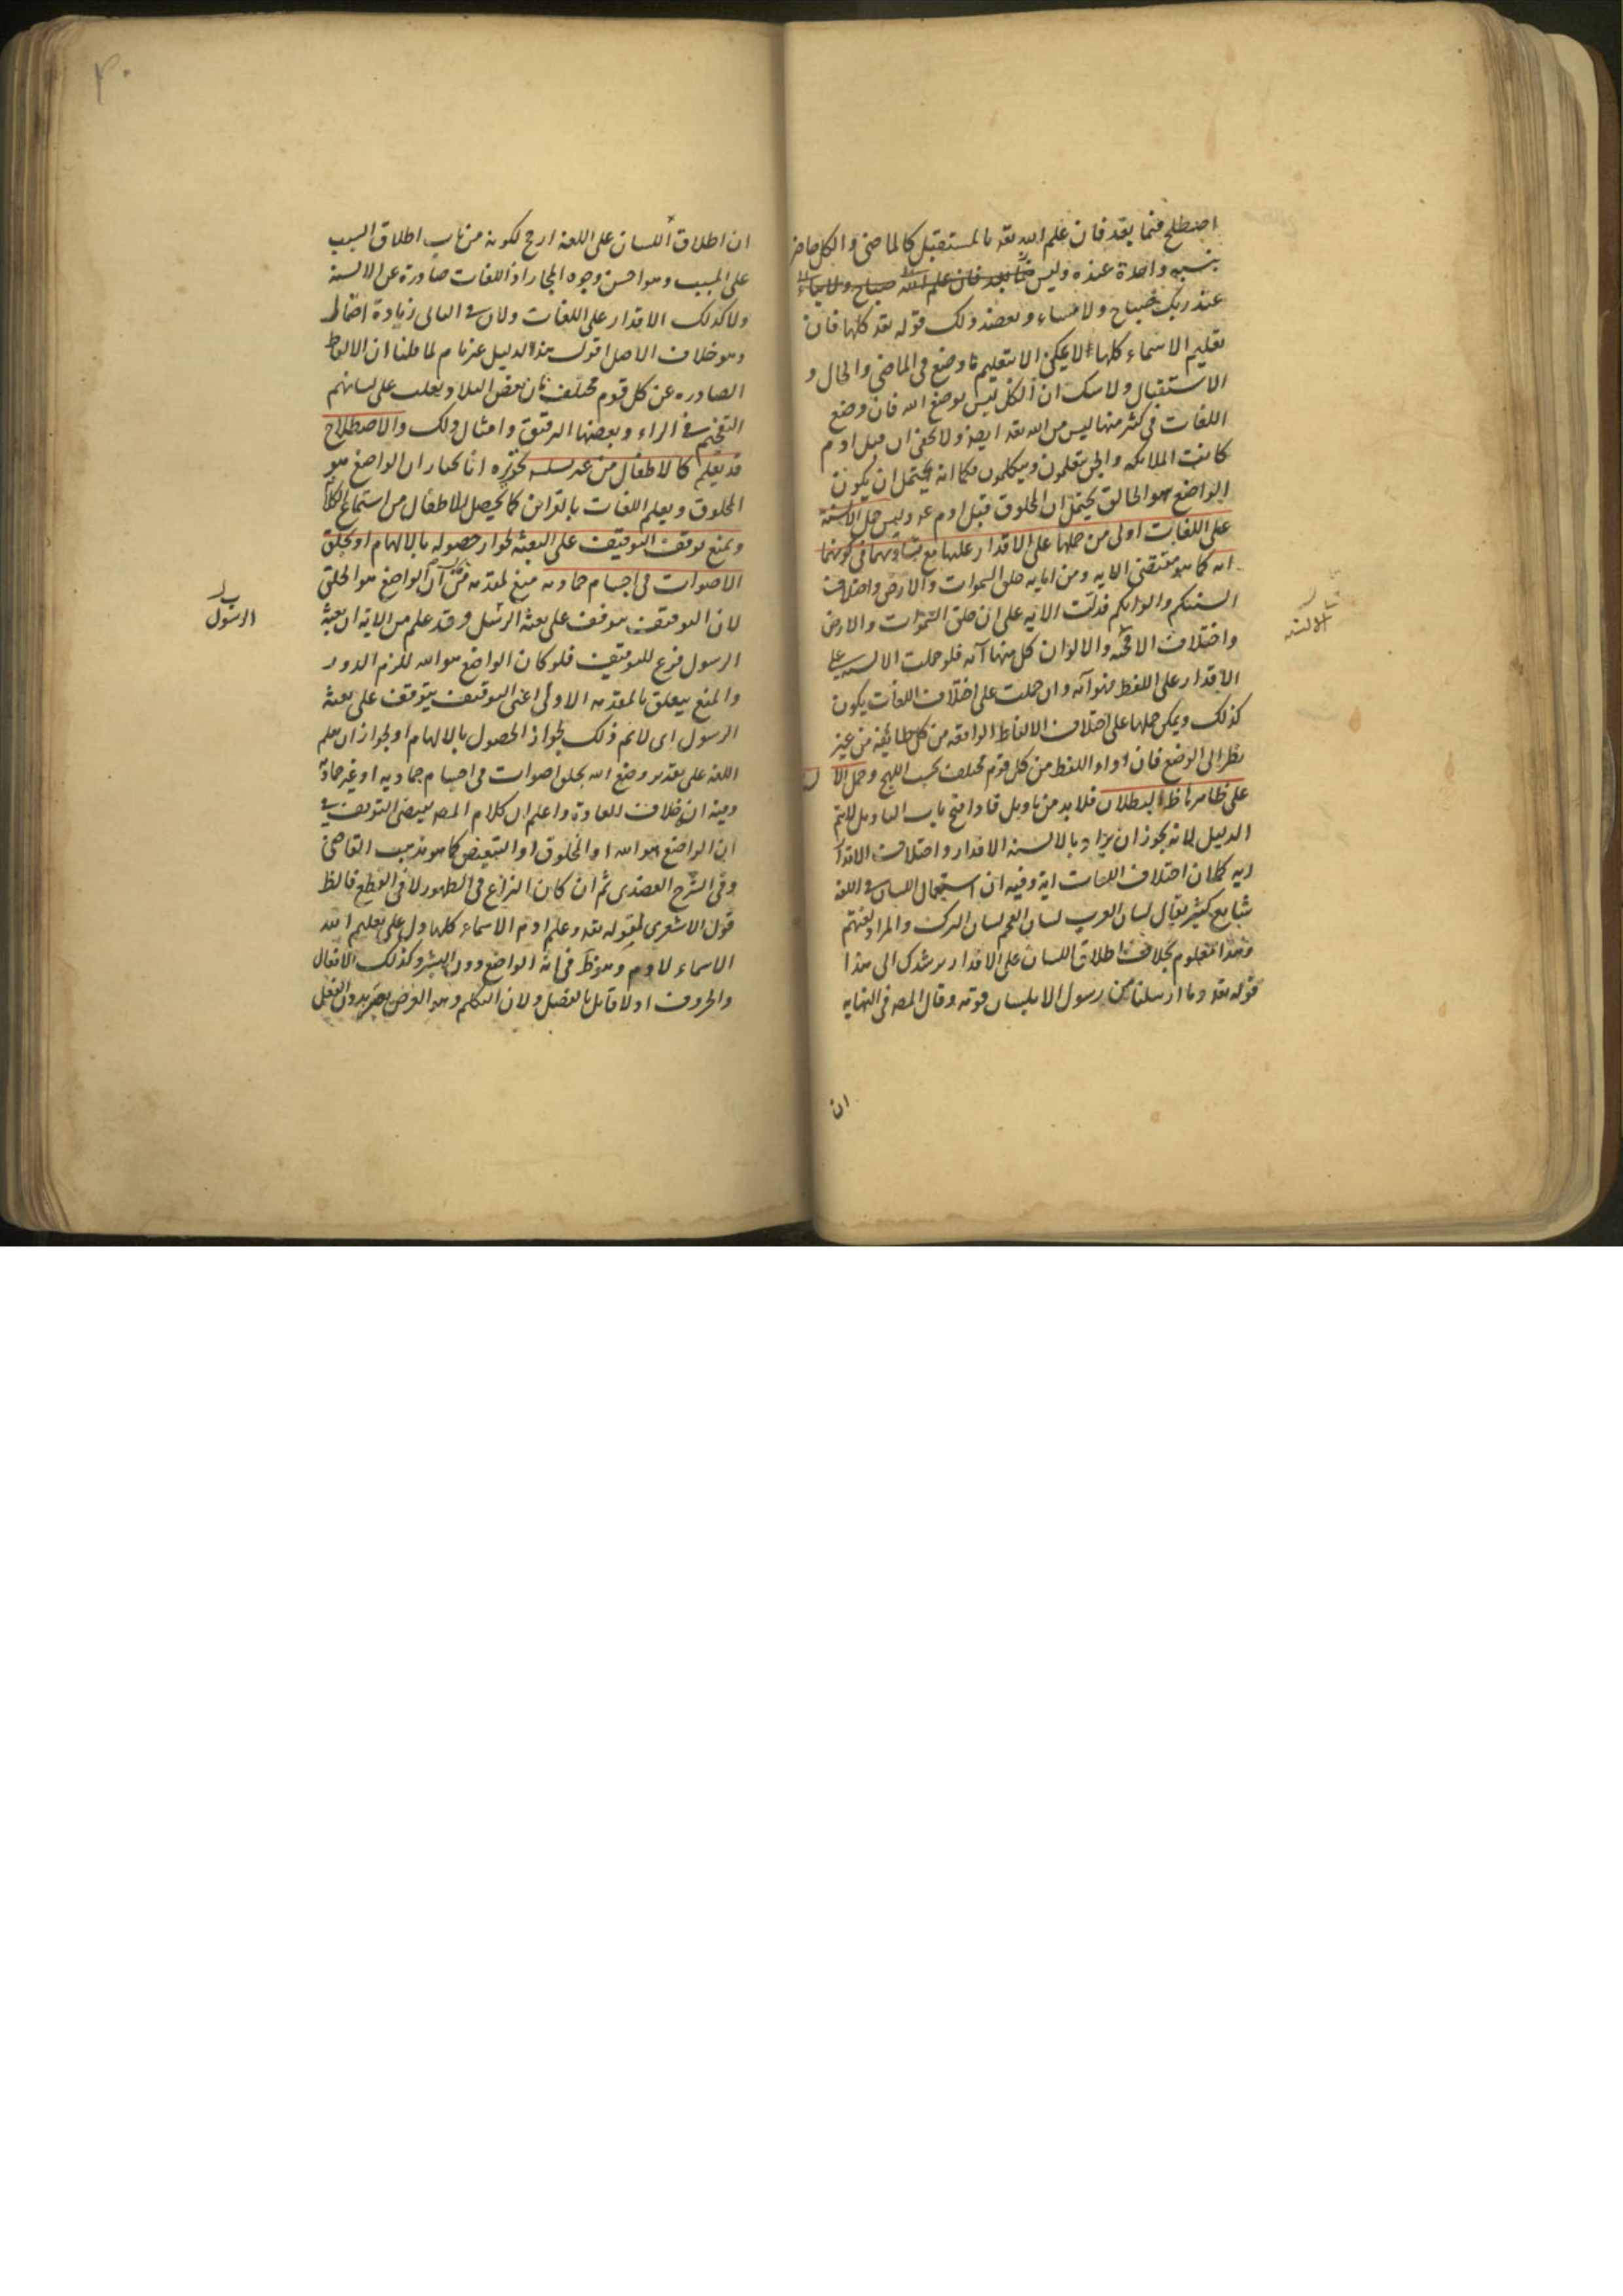 اصطلح فيما بعد فان علم الله تعه بالمستقبل كالماضى والكل حاضر
بنسبة واحدة عنده وليس
عند ربك صباح ولا مساء ويعضد ذلك قوله تعه كلها فان
تعليم الاسماء كلها لا يمكن الا بتعليم ما وضع فى الماضى والحال و
الاستقبال ولا شك ان الكل ليس بوضع الله فان وضع
اللغات فى كثير منها ليس من الله تعه ايضا ولا يخفى ان قبل ادم
كانت الملائكه والجن يتعلمون ويتكلمون فكما انه يحتمل ان يكون
الواضع هو الخالق يحتمل ان المخلوق قبل ادم عه وليس حمل الالسنة
على اللغات اولى من حملها على الاقدار عليها مع تساويهما فى كونهما
ايه كما هو مقتضى الايه ومن اياته خلق السموات والارض واختلاف
السنتكم والوانكم فدلت الايه على ان خلق السموات والارض
واختلاف الالسنة والالوان كل منها آيه فلو حملت الالسنه على
الاقدار على اللفظ فهو آيه وان حملت على اختلاف اللغات يكون
كذلك ويمكن حملها على اختلاف الالفاظ الواقعه من كل طائفه من غير
نظر الى الوضع فان اداء اللفظ من كل قوم مختلف بحسب اللهج وحمل الا
على ظاهرها ظ البطلان فلا بد من تاويل فاذا فتح باب التاويل لا يتم
الدليل لانه يجوز ان يراد بالالسنه الاقدار واختلاف الاقدا
ايه كما ان اختلاف اللغات اية وفيه ان استعمال اللسان فى اللغه
شايع كثير يقال لسان العرب لسان العجم لسان الترك والمراد لغتهم
وهذا معلوم بخلاف اطلاق اللسان على الاقدار يرشدك الى هذا
قوله تعه وما ارسلنا من رسول الا بلسان قومه وقال المصه فى النهايه
ان
الالسنه
٣٠
ان اطلاق اللسان على اللغة ارجح لكونه من باب اطلاق السبب
على المسبب وهو احسن وجوه المجاز اذ اللغات صادرة عن الالسنة
ولا كذلك الاقدار على اللغات ولان فى الثانى زيادة اضمار
وهو خلاف الاصل اقول هذا الدليل غير تام لما قلنا ان الالفاظ
الصادره عن كل قوم مختلف فان بعض البلاد يغلب على لسانهم
التفخيم فى الراء وبعضها الترقيق وامثال ذلك والاصطلاح
قد يعلم كالاطفال من غير انا نختار ان الواضع هو
المخلوق ويعلم اللغات بالقرائن كما يحصل للاطفال من استماع الكلام
ويمنع توقف التوقيف على البعثه لجواز حصوله بالالهام او بخلق
الاصوات فى اجسام جماديه منع لمقدمه من ان الواضع هو الخلق
لان التوقيف موقوف على بعثه الرسل وقد علم من الاية ان بعثة
الرسول فرع للتوقيف فلو كان الواضع هو الله للزم الدور
والمنع يتعلق بالمقدمه الاولى اعنى التوقيف يتوقف على بعثه
الرسول اى لا نم ذلك لجواز الحصول بالالهام او لجواز ان يعلم
اللغه على تقدير وضع الله بخلق اصوات فى اجسام جماديه او غير جمادية
وفيه انه خلاف العادة واعلم ان كلام المصه يقتضى التوقف فى
ان الواضع هو الله او المخلوق او التبعيض كما هو مذهب القاضى
وفى الشرح العضدى ثم ان كان النزاع فى الظهور لا فى القطع فالظ
قول الاشعرى لقوله تعه وعلم ادم الاسماء كلها دل على تعليم الله
الاسماء لادم وهو ظ فى انه الواضع دون البشر وكذلك الافعال
والحروف اذ لا قائل بالفصل ولان التكلم وهو الغرض
الرسول